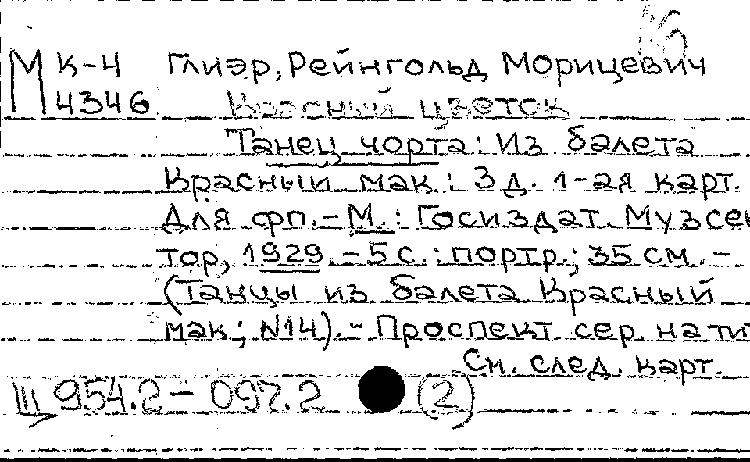 М К-4 Глиэр, Рейнгольд Морицевич
4346 Красный цветок
Танец чорта: Из балета
Красный мак: 3 д. 1-ая карт.
Для фп. - М.: Госиздат. Музсек
тор, 1929. - 5 с.: портр.; 35 см. -
(Танцы из балета Красный
мак; N14). - Проспект сер. на тит
См. след. карт.
Ш 954.2 - 097.2 (2)